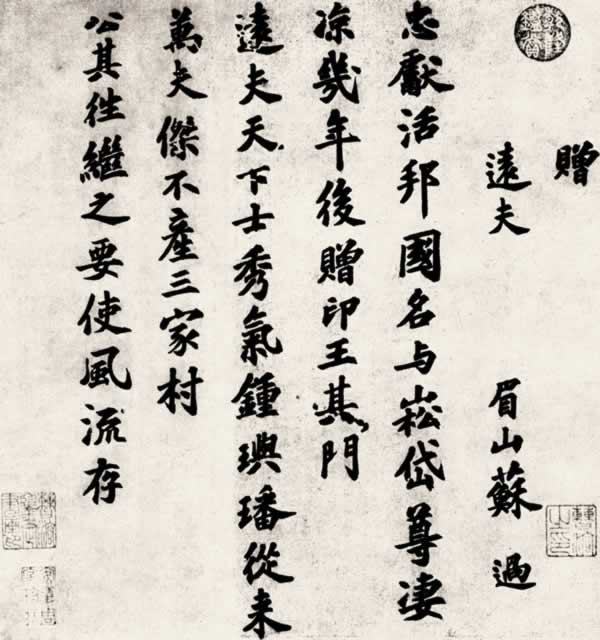 贈
遠夫 眉山蘇過
忠獻活邦國名与崧岱尊淒
凉幾年後贈印王其門
遠夫天下士秀氣鍾璵璠從来
萬夫傑不產三家村
公其往繼之要使風流存